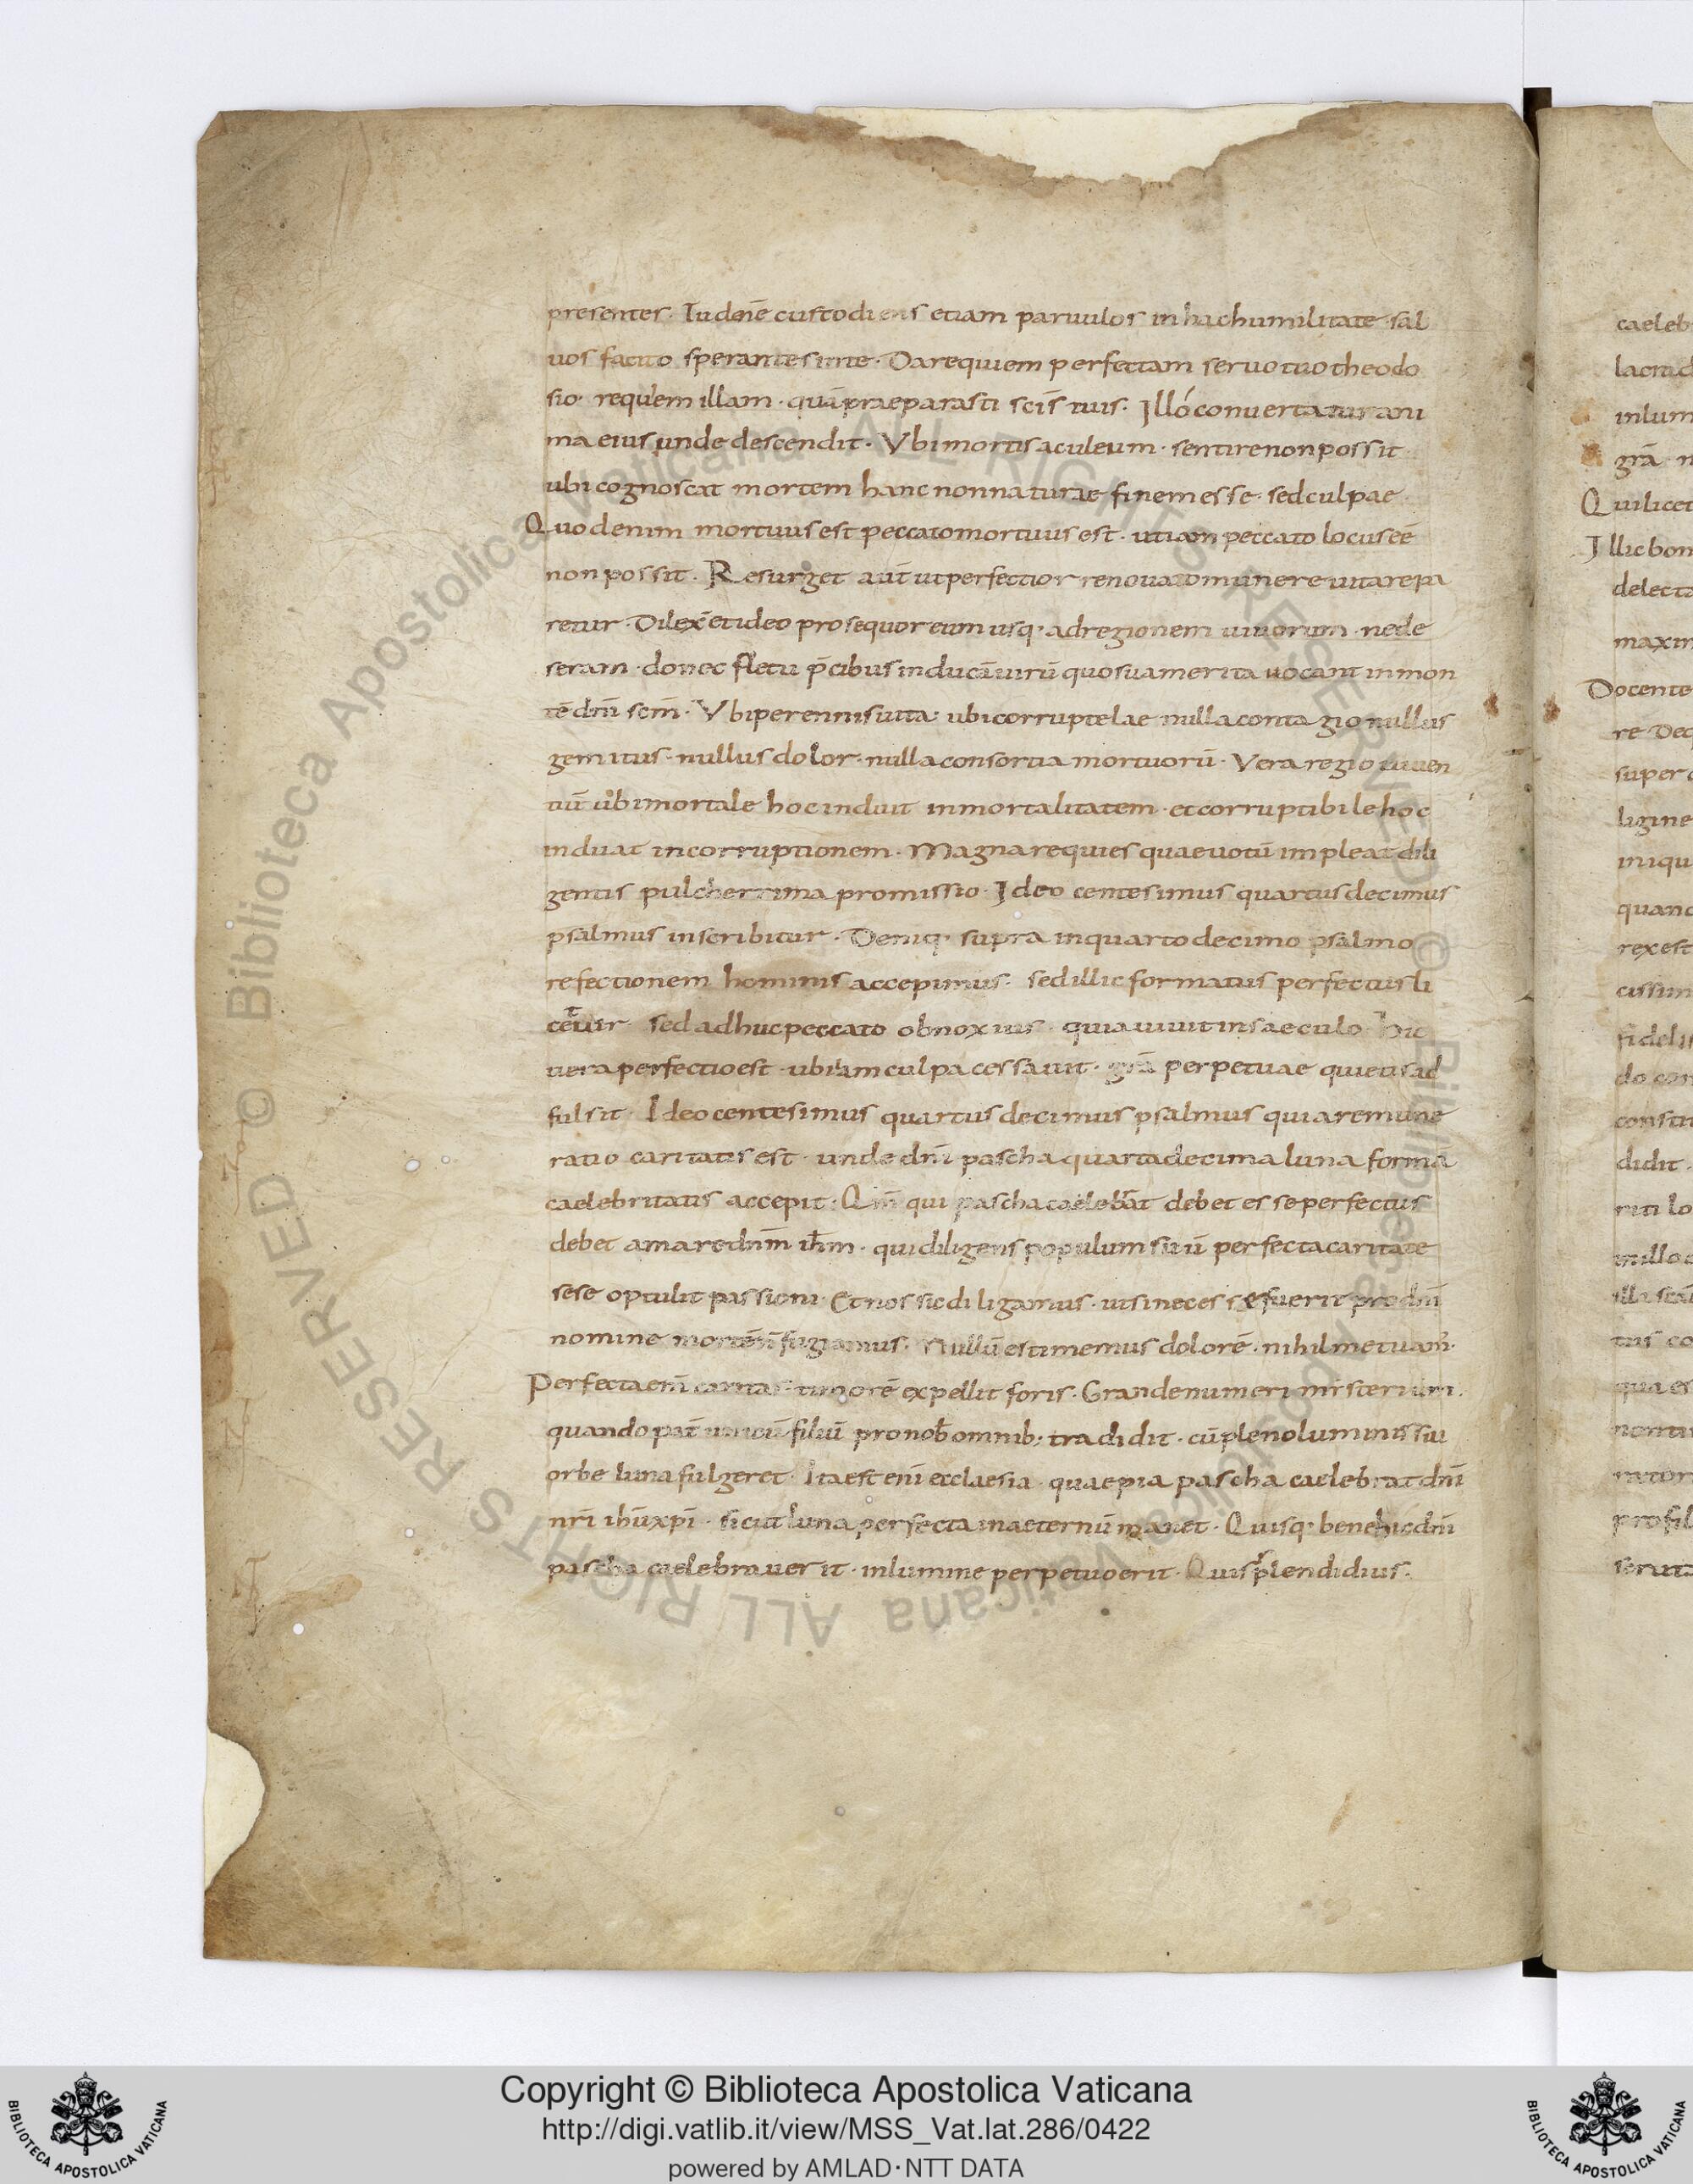 presenter. Tu dne custodiens etiam paruulos in hac humilitate sal
uos facito sperantes in te. Da requiem perfectam seruo tuo theodo
sio. requiem illam. quā praeparasti scīs tuis. Illo conuertatur ani
ma eius unde descendit. Vbi mortis aculeum. sentire non possit
ubi cognoscat mortem hanc non naturae finem esse. sed culpae.
Quod enim mortuus est peccato mortuus est. ut iam peccato locus eē
non possit. Resurget aut̄ ut perfectior renouato munere uita repa
retur. Dilexi et ideo prosequor eum usq; ad regionem uiuorum. ne de
seram. donec fletu p̄cibus inducā uirū quo sua merita uocant in mon
tē dnī scm̄. Vbi perennis uita: ubi corruptelae nulla contagio nullus
gemitus. nullus dolor. nulla consortia mortuorū. Vera regio uiuen
tiū ubi mortale hoc induit inmortalitatem. et corruptibile hoc
induat incorruptionem. Magna requies quae uotū impleat dili
gentis pulcherrima promissio. Ideo centesimus quartus decimus
psalmus inscribitur. Deniq; supra in quarto decimo psalmo
refectionem hominis accepimus. sed illic formatus perfectus li
cet uir sed adhuc peccato obnoxius. quia uiuit in saeculo. hic
uera perfectio est. ubi iam culpa cessauit. grā perpetuae quietis ad
fulsit. Ideo centesimus quartus decimus psalmus quia remune
ratio caritatis est. unde dnī pascha quartadecima luna forma
caelebritatis accepit. Qm̄ qui pascha caelebrat debet esse perfectus
debet amare dnm̄ ihm̄. qui diligens populum suū perfecta caritate
sese optulit passioni. Et nos sic diligamus. ut si necesse fuerit pro dnī
nomine mortē n̄ fugiamus. Nullū estimemus dolorē. nihil metuam̄.
Perfecta enī caritas timorē expellit foris. Grande numeri misterium.
quando pat̄ unicū filiū pro nob̄ omnib; tradidit. cū pleno luminis sui
orbe luna fulgeret. Ita est enī ecclaesia. quae pia pascha caelebrat dnī
nrī ihū xpī. sicut luna perfecta in aeternū manet. Quisq; bene hic dnī
pascha caelebrauerit. in lumine perpetuo erit. Quis splendidius.
caeleb
inlum
grā n
Qui licet
Illic bon
delecta
maxim
Docente
super
ligine
iniqu
quand
rex est
cissim
fidelis
do con
constit
didit.
riti lo
in illo
tus co
qua es
profil
Copyright © Biblioteca Apostolica Vaticana
http://digi.vatlib.it/view/MSS_Vat.lat.286/0422
powered by AMLAD·NTT DATA
BIBLIOTECA APOSTOLICA VATICANA
BIBLIOTECA APOSTOLICA VATICANA
© Biblioteca Apostolica Vaticana ALL RIGHTS RESERVED © Biblioteca Apostolica Vaticana ALL RIGHTS RESERVED